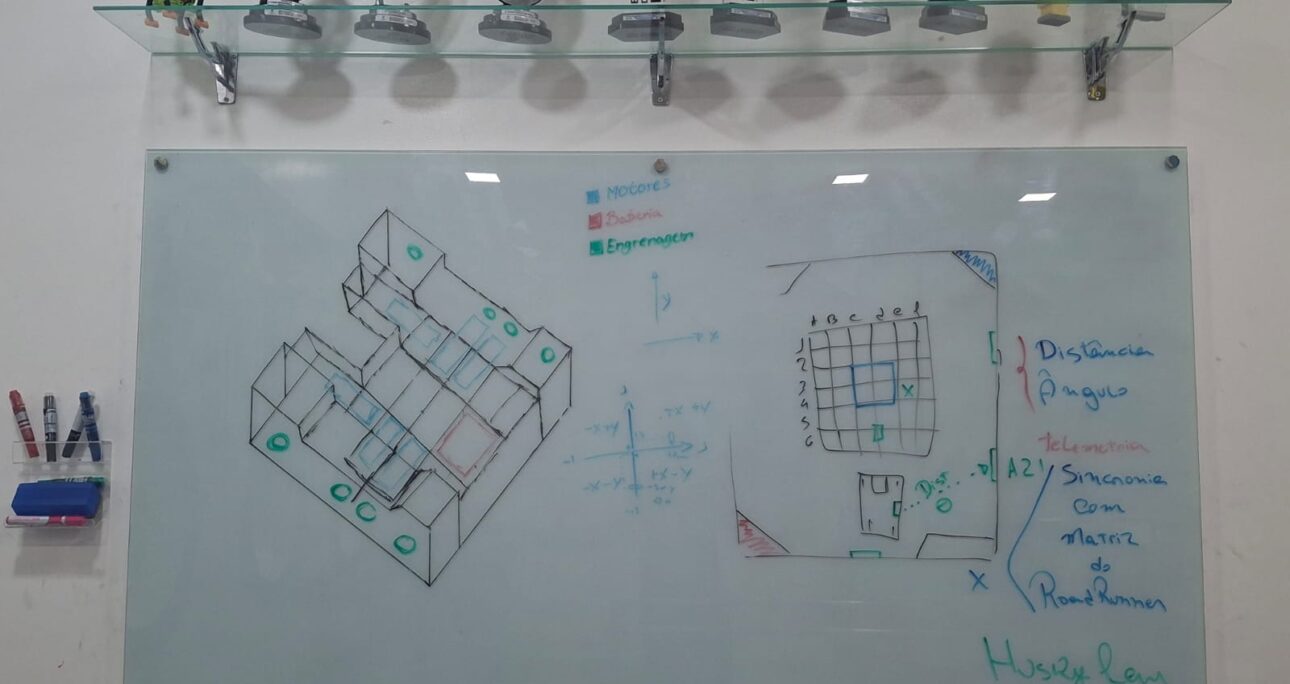 Motores
Bateria
Engrenagem
y
x
-x+y
+x+y
-x-y
+x-y
A B C d e f
1
2
3
4
5
6
x
Dist
A21
X
Distância
Ângulo
Telemetria
Sincronia
com
Matriz
do
RoadRunner